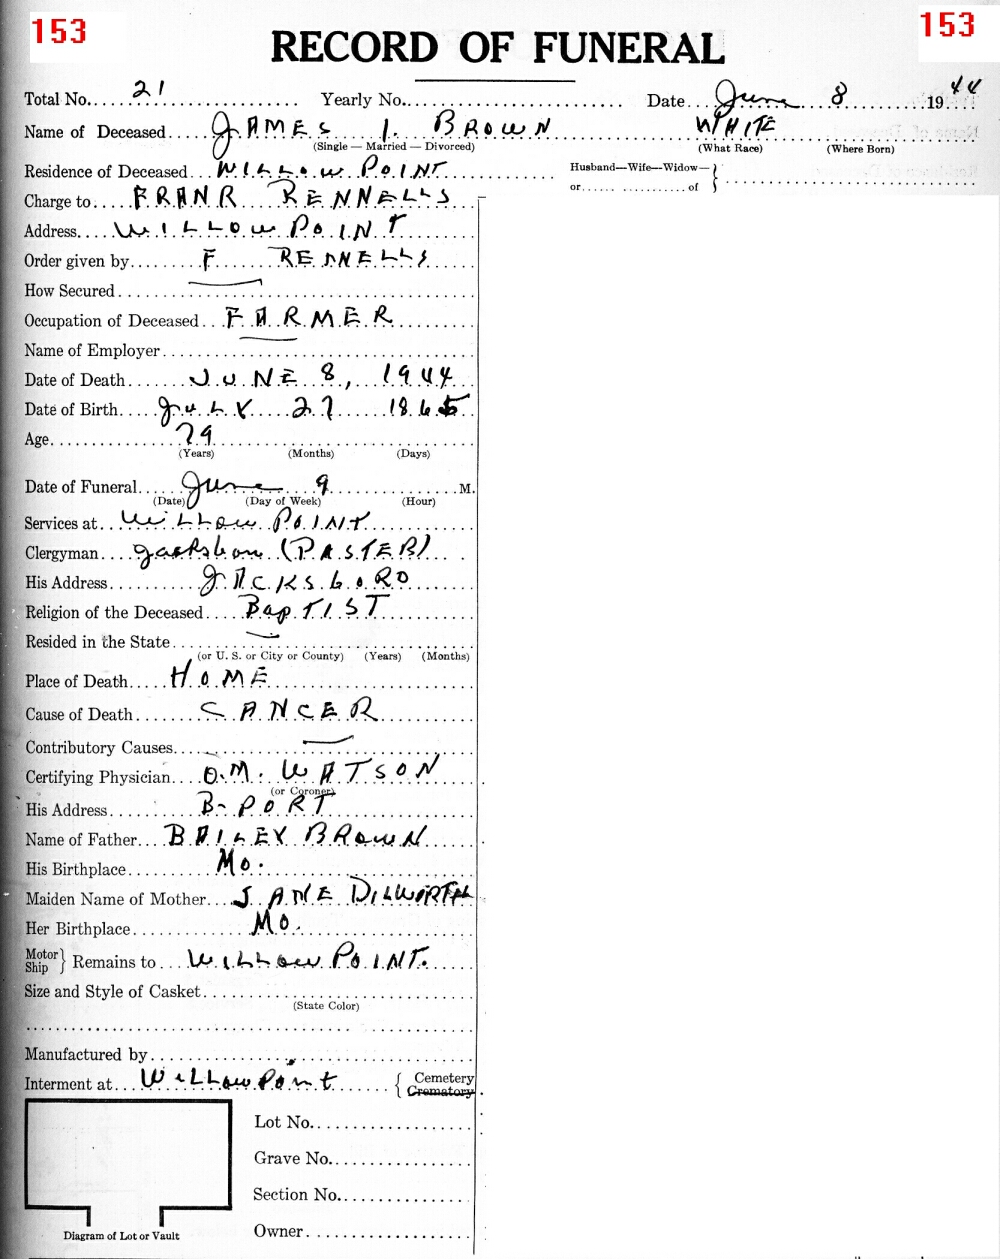 153
153
RECORD OF FUNERAL
Total No. 21 Yearly No. Date June 8 1944
Name of Deceased JAMES I. BROWN WHITE
(Single — Married — Divorced) (What Race) (Where Born)
Residence of Deceased WILLOW POINT Husband—Wife—Widow—
or of
Charge to FRANK RENNELLS
Address WILLOW POINT
Order given by F RENNELLS
How Secured
Occupation of Deceased FARMER
Name of Employer
Date of Death JUNE 8, 1944
Date of Birth JULY 27 1865
Age 79
(Years) (Months) (Days)
Date of Funeral June 9 M.
(Date) (Day of Week) (Hour)
Services at WILLOW POINT
Clergyman (PASTER)
His Address JACKSBORO
Religion of the Deceased BapTIST
Resided in the State
(or U. S. or City or County) (Years) (Months)
Place of Death HOME
Cause of Death CANCER
Contributory Causes
Certifying Physician O.M. WATSON
(or Coroner)
His Address B-PORT
Name of Father BAILEY BROWN
His Birthplace Mo.
Maiden Name of Mother JANE DILWORTH
Her Birthplace Mo.
Motor
Ship Remains to WILLOW POINT.
Size and Style of Casket
(State Color)
Manufactured by
Interment at WILLOW Point Cemetery
Crematory
Lot No.
Grave No.
Section No.
Owner
Diagram of Lot or Vault